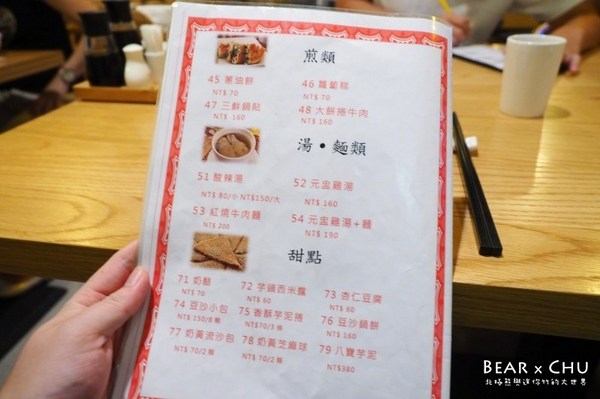 煎類
45 蔥油餅 46 蘿蔔糕
NT$ 70 NT$ 70
47 三鮮鍋貼 48 大餅捲牛肉
NT$ 160 NT$ 160
湯•麵類
51 酸辣湯 52 元盅雞湯
NT$ 80/小 NT$150/大 NT$ 160
53 紅燒牛肉麵 54 元盅雞湯+麵
NT$ 200 NT$ 190
甜點
71 奶酪 72 芋頭西米露 73 杏仁豆腐
NT$ 70 NT$ 60 NT$ 60
74 豆沙小包 75 香酥芋泥捲 76 豆沙鍋餅
NT$ 150/8顆 NT$70/3 條 NT$ 160
77 奶黃流沙包 78 奶黃芝麻球 79 八寶芋泥
NT$ 70/2 顆 NT$ 70/2 顆 NT$380
BEAR x CHU
北極熊與迷你竹的大世界